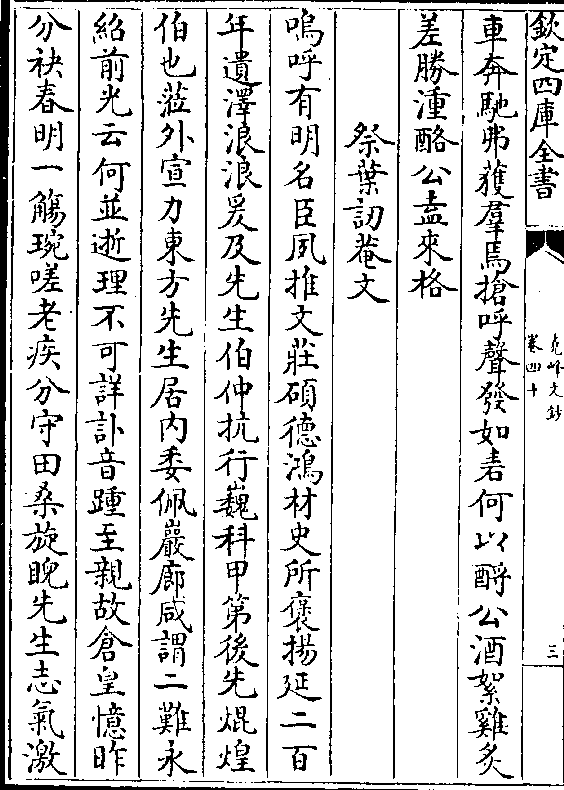 欽定四庫全書
堯峰文鈔
卷四十
三
車奔馳弗獲羣焉搶呼聲發如砉何以酹公酒絮雞炙
差勝湩酪公盍來格
祭葉訒菴文
嗚呼有明名臣夙推文莊碩德鴻材史所褒揚延二百
年遺澤浪浪爰及先生伯仲抗行巍科甲第後先焜煌
伯也蒞外宣力東方先生居內委佩巖廊咸謂二難永
紹前光云何並逝理不可詳訃音踵至親故倉皇憶昨
分袂春明一觴琬嗟老疾分守田桑旋睨先生志氣激